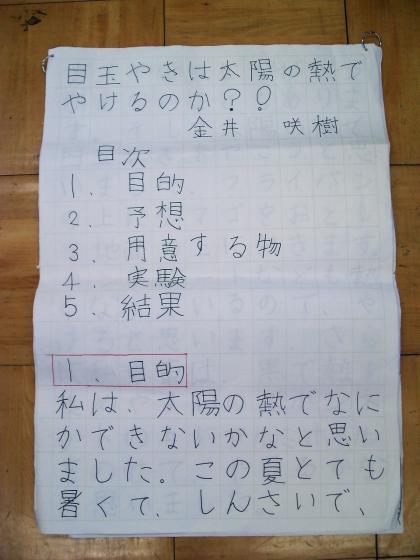 目玉やきは太陽の熱で
やけるのか?!
金井 咲樹
目次
1、目的
2、予想
3、用意する物
4、実験
5、結果
1、目的
私は、太陽の熱でなに
かできないかなと思い
ました。この夏とても
暑くて、しんさいで、